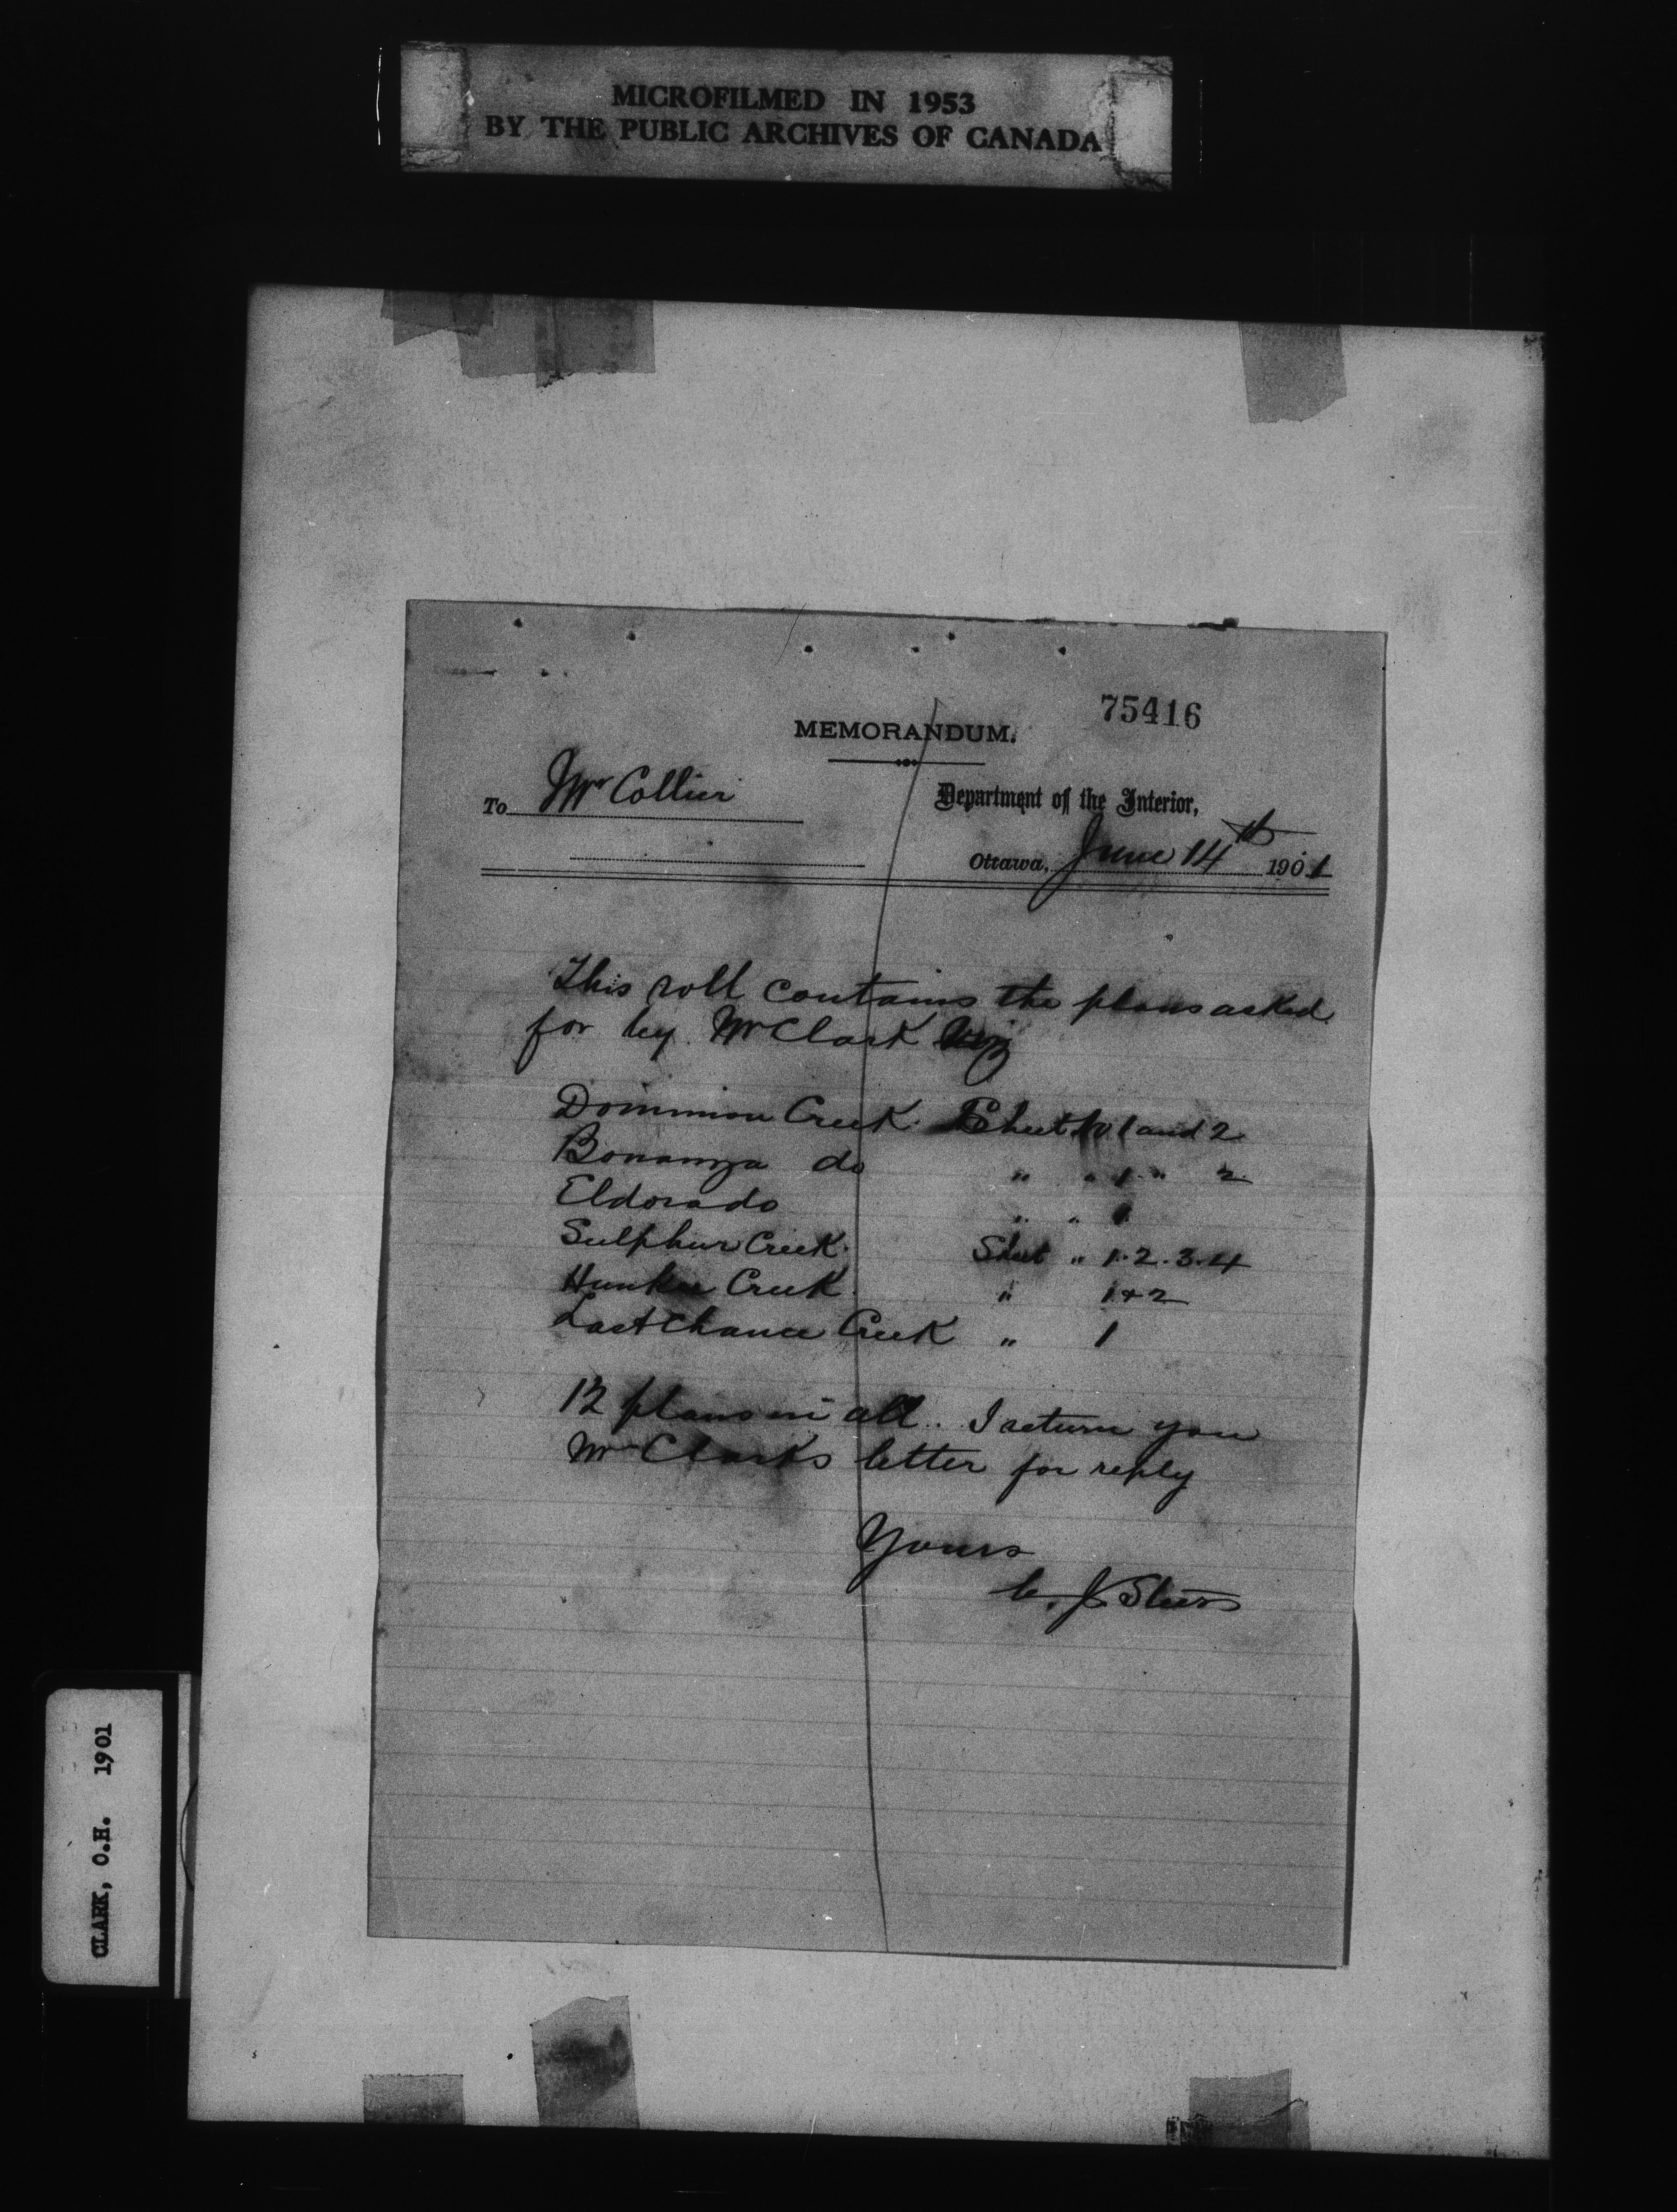 MICROFILMED IN 1953
BY THE PUBLIC ARCHIVES OF CANADA
75416
MEMORANDUM.
To Mr Collier
Department of the Interior,
Ottawa, June 14th 1901
This roll contains the plans asked
for by Mr Clark viz
Dominion Creek. Sheet No 1 and 2
Bonanza do " " 1 " 2
Eldorado " " 1
Sulphur Creek. Sheet " 1.2.3.4
Hunker Creek. " 1 & 2
Last Chance Creek " 1
12 plans in all. I return you
Mr Clarks letter for reply
Yours
C. J. Steers
CLARK, O.H. 1901